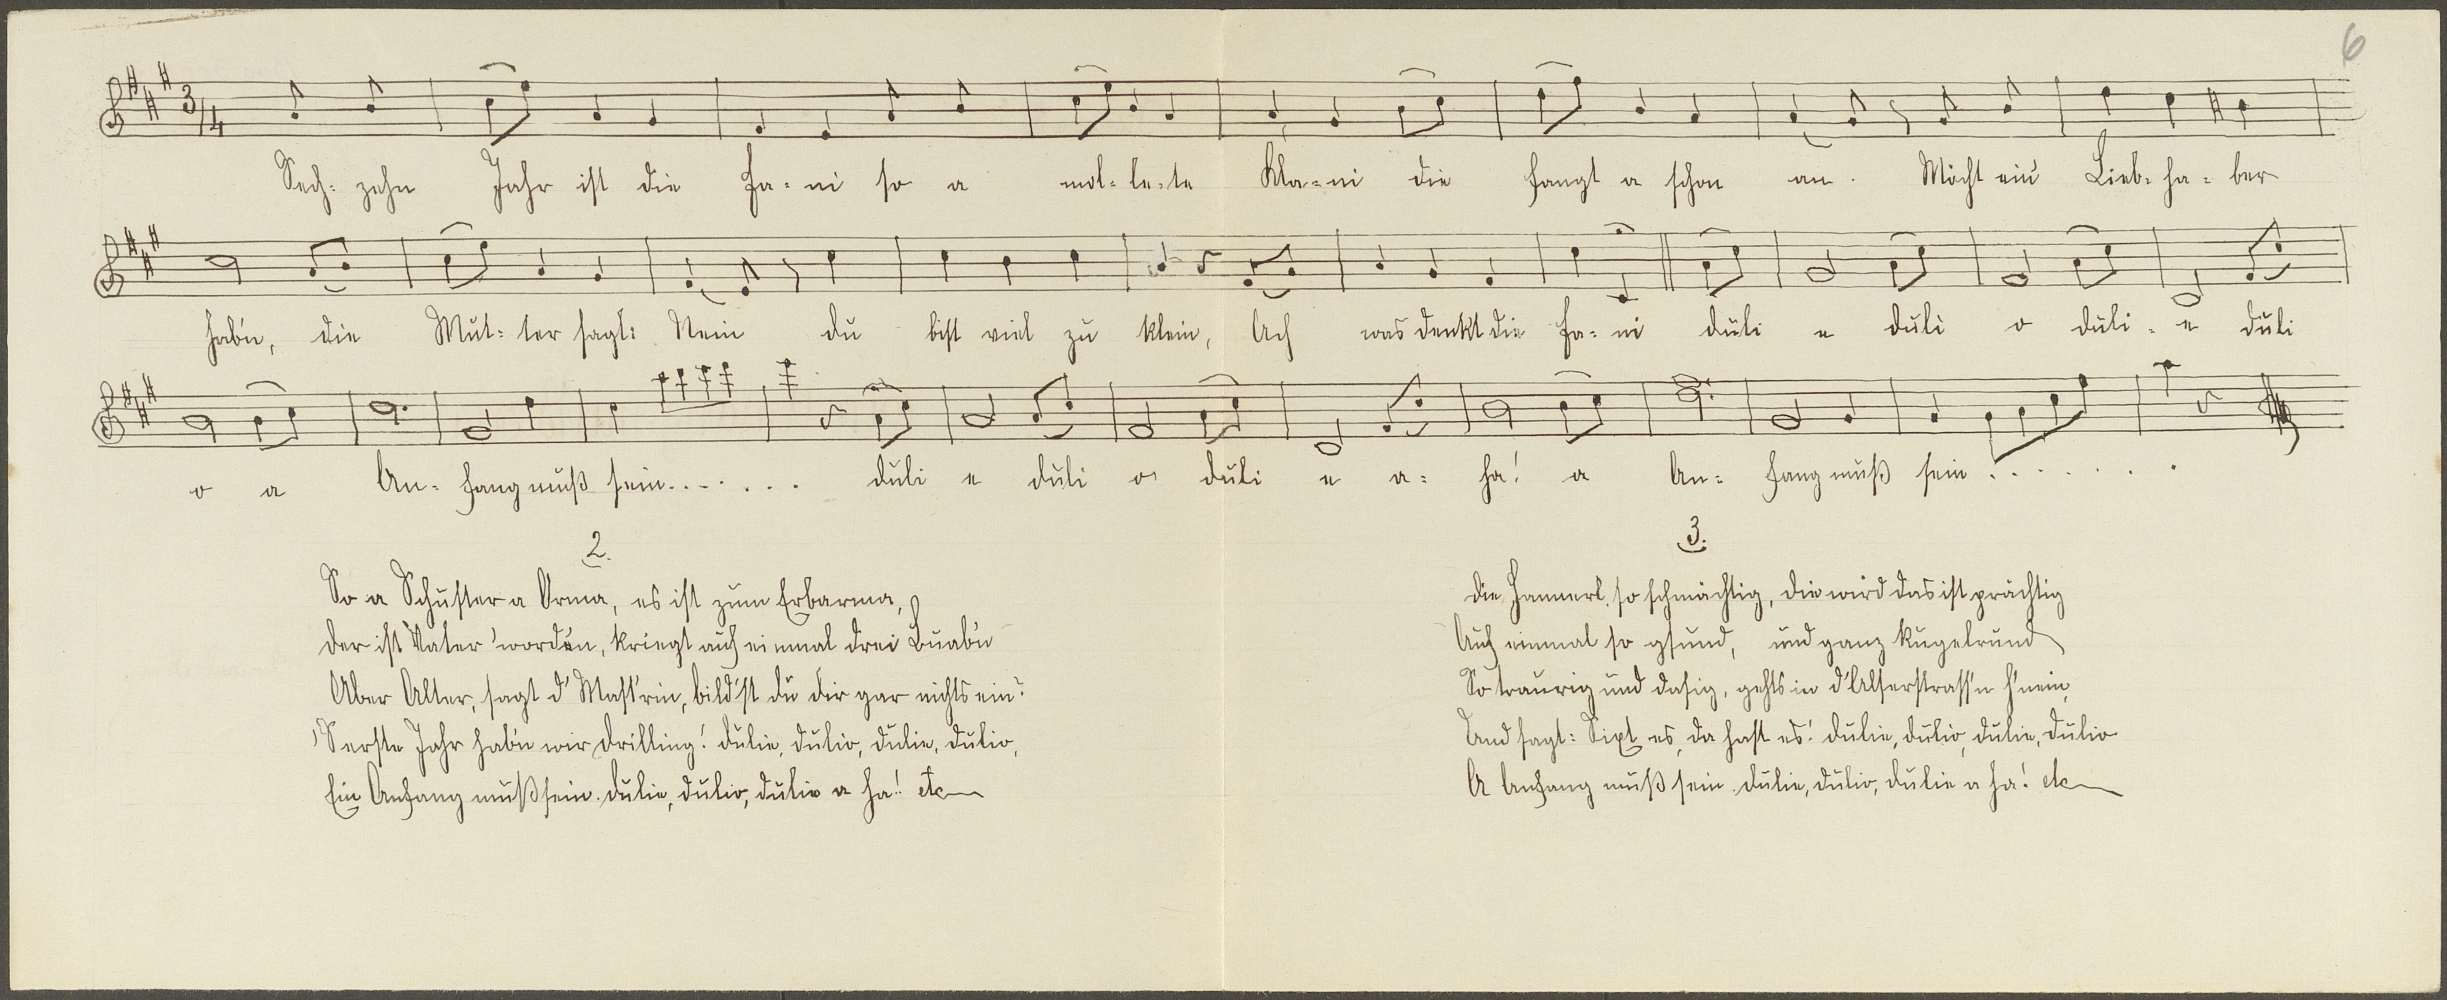 6
3/4
Sech- zehn Jahr ist die Fa- ni so a mol- le- te Kla- ni die fangt a schon an. Möcht ein' Lieb- ha- ber
hab'n, die Mut- ter sagt: Nein du bist viel zu klein, Ach was denkt die Fa- ni duli e duli o duli- e duli
o a An- fang muß sein....... duli e duli o duli e a- ha! a An- fang muß sein.......
2.
So a Schuster a Orma, es ist zum Erbarma,
der ist Vater 'word'n, kriegt auf einmal drei Buab'n
Aber Alter, sagt d' Mast'rin, bild'st du dir gar nichts ein?
's erste Jahr hab'n wir Drilling! dulie, dulio, dulie, dulio,
Ein Anfang muß sein. dulie, dulio, dulie a ha! etc
3.
die Hannerl, so schmächtig, die wird das ist prächtig
Auf einmal so gsund, und ganz kugelrund
So traurig und dasig, gehts in d'Alserstrass'n h'nein,
Und sagt: Sixt es, da hast es! dulie, dulio, dulie, dulio
A Anfang muß sein. dulie, dulio, dulie a ha! etc